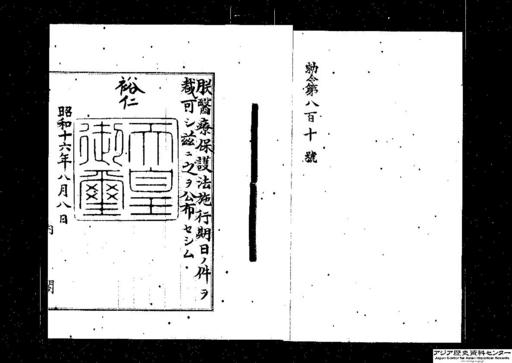 勅令第八百十號
朕醫療保護法施行期日ノ件ヲ
裁可シ茲ニ之ヲ公布セシム
裕仁
天皇御璽
昭和十六年八月八日
アジア歴史資料センター
Japan Center for Asian Historical Records